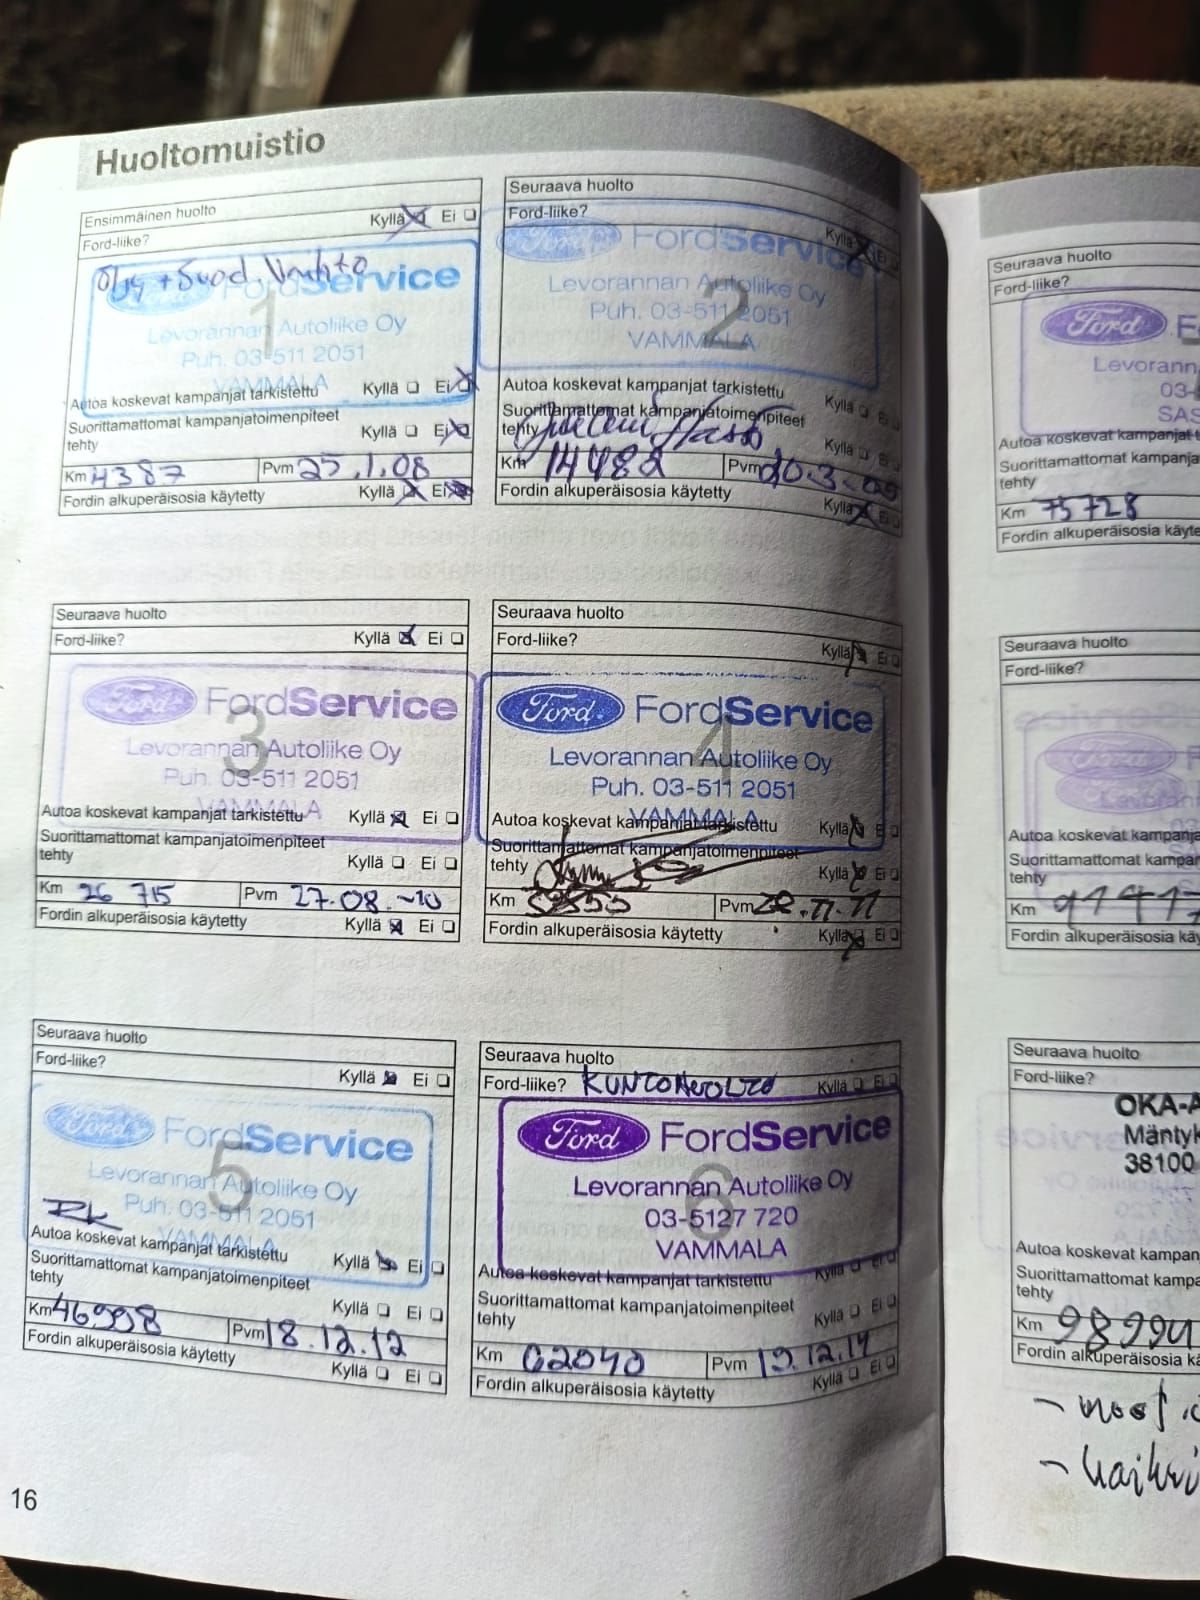 Huoltomuistio
Ensimmäinen huolto
Ford-liike? Kyllä Ei
Öljy + Suod. Vaihto
Ford FordService
1
Levorannan Autoliike Oy
Puh. 03-511 2051
VAMMALA
Autoa koskevat kampanjat tarkistettu Kyllä Ei
Suorittamattomat kampanjatoimenpiteet
tehty Kyllä Ei
Km 4387 Pvm 25.1.08
Fordin alkuperäisosia käytetty Kyllä Ei
Seuraava huolto
Ford-liike? Kyllä Ei
Ford FordService
2
Levorannan Autoliike Oy
Puh. 03-511 2051
VAMMALA
Autoa koskevat kampanjat tarkistettu Kyllä Ei
Suorittamattomat kampanjatoimenpiteet
tehty Kyllä Ei
Km 14482 Pvm
Fordin alkuperäisosia käytetty Kyllä Ei
Seuraava huolto
Ford-liike? Kyllä Ei
Ford FordService
3
Levorannan Autoliike Oy
Puh. 03-511 2051
VAMMALA
Autoa koskevat kampanjat tarkistettu Kyllä Ei
Suorittamattomat kampanjatoimenpiteet
tehty Kyllä Ei
Km 26 715 Pvm 27.08.-10
Fordin alkuperäisosia käytetty Kyllä Ei
Seuraava huolto
Ford-liike? Kyllä Ei
Ford FordService
4
Levorannan Autoliike Oy
Puh. 03-511 2051
VAMMALA
Autoa koskevat kampanjat tarkistettu Kyllä Ei
Suorittamattomat kampanjatoimenpiteet
tehty Kyllä Ei
Km Pvm 28.11.11
Fordin alkuperäisosia käytetty Kyllä Ei
Seuraava huolto
Ford-liike? Kyllä Ei
Ford FordService
5
Levorannan Autoliike Oy
Puh. 03-511 2051
VAMMALA
Autoa koskevat kampanjat tarkistettu Kyllä Ei
Suorittamattomat kampanjatoimenpiteet
tehty Kyllä Ei
Km 46998 Pvm 18.12.12
Fordin alkuperäisosia käytetty Kyllä Ei
Seuraava huolto
Ford-liike? KUNTOHUOLTO Kyllä Ei
Ford FordService
6
Levorannan Autoliike Oy
03-5127 720
VAMMALA
Autoa koskevat kampanjat tarkistettu Kyllä Ei
Suorittamattomat kampanjatoimenpiteet
tehty Kyllä Ei
Km 62040 Pvm 19.12.14
Fordin alkuperäisosia käytetty Kyllä Ei
16
Seuraava huolto
Ford-liike?
Ford
Levorann
03-
SAS
Autoa koskevat kampanjat t
Suorittamattomat kampanja
tehty
Km 75728
Fordin alkuperäisosia käyte
Seuraava huolto
Ford-liike?
Ford
Levorann
Autoa koskevat kampanja
Suorittamattomat kampa
tehty
Km 91417
Fordin alkuperäisosia käy
Seuraava huolto
Ford-liike?
OKA-A
Mäntyk
38100
Autoa koskevat kampan
Suorittamattomat kampa
tehty
Km 98994
Fordin alkuperäisosia kä